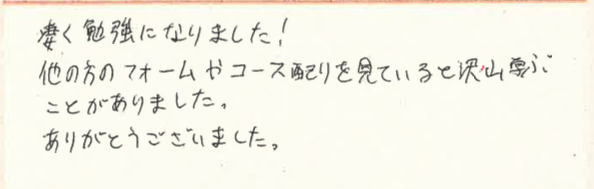 凄く勉強になりました!
他の方のフォームやコース配りを見ていると沢山学ぶ
ことがありました。
ありがとうございました。